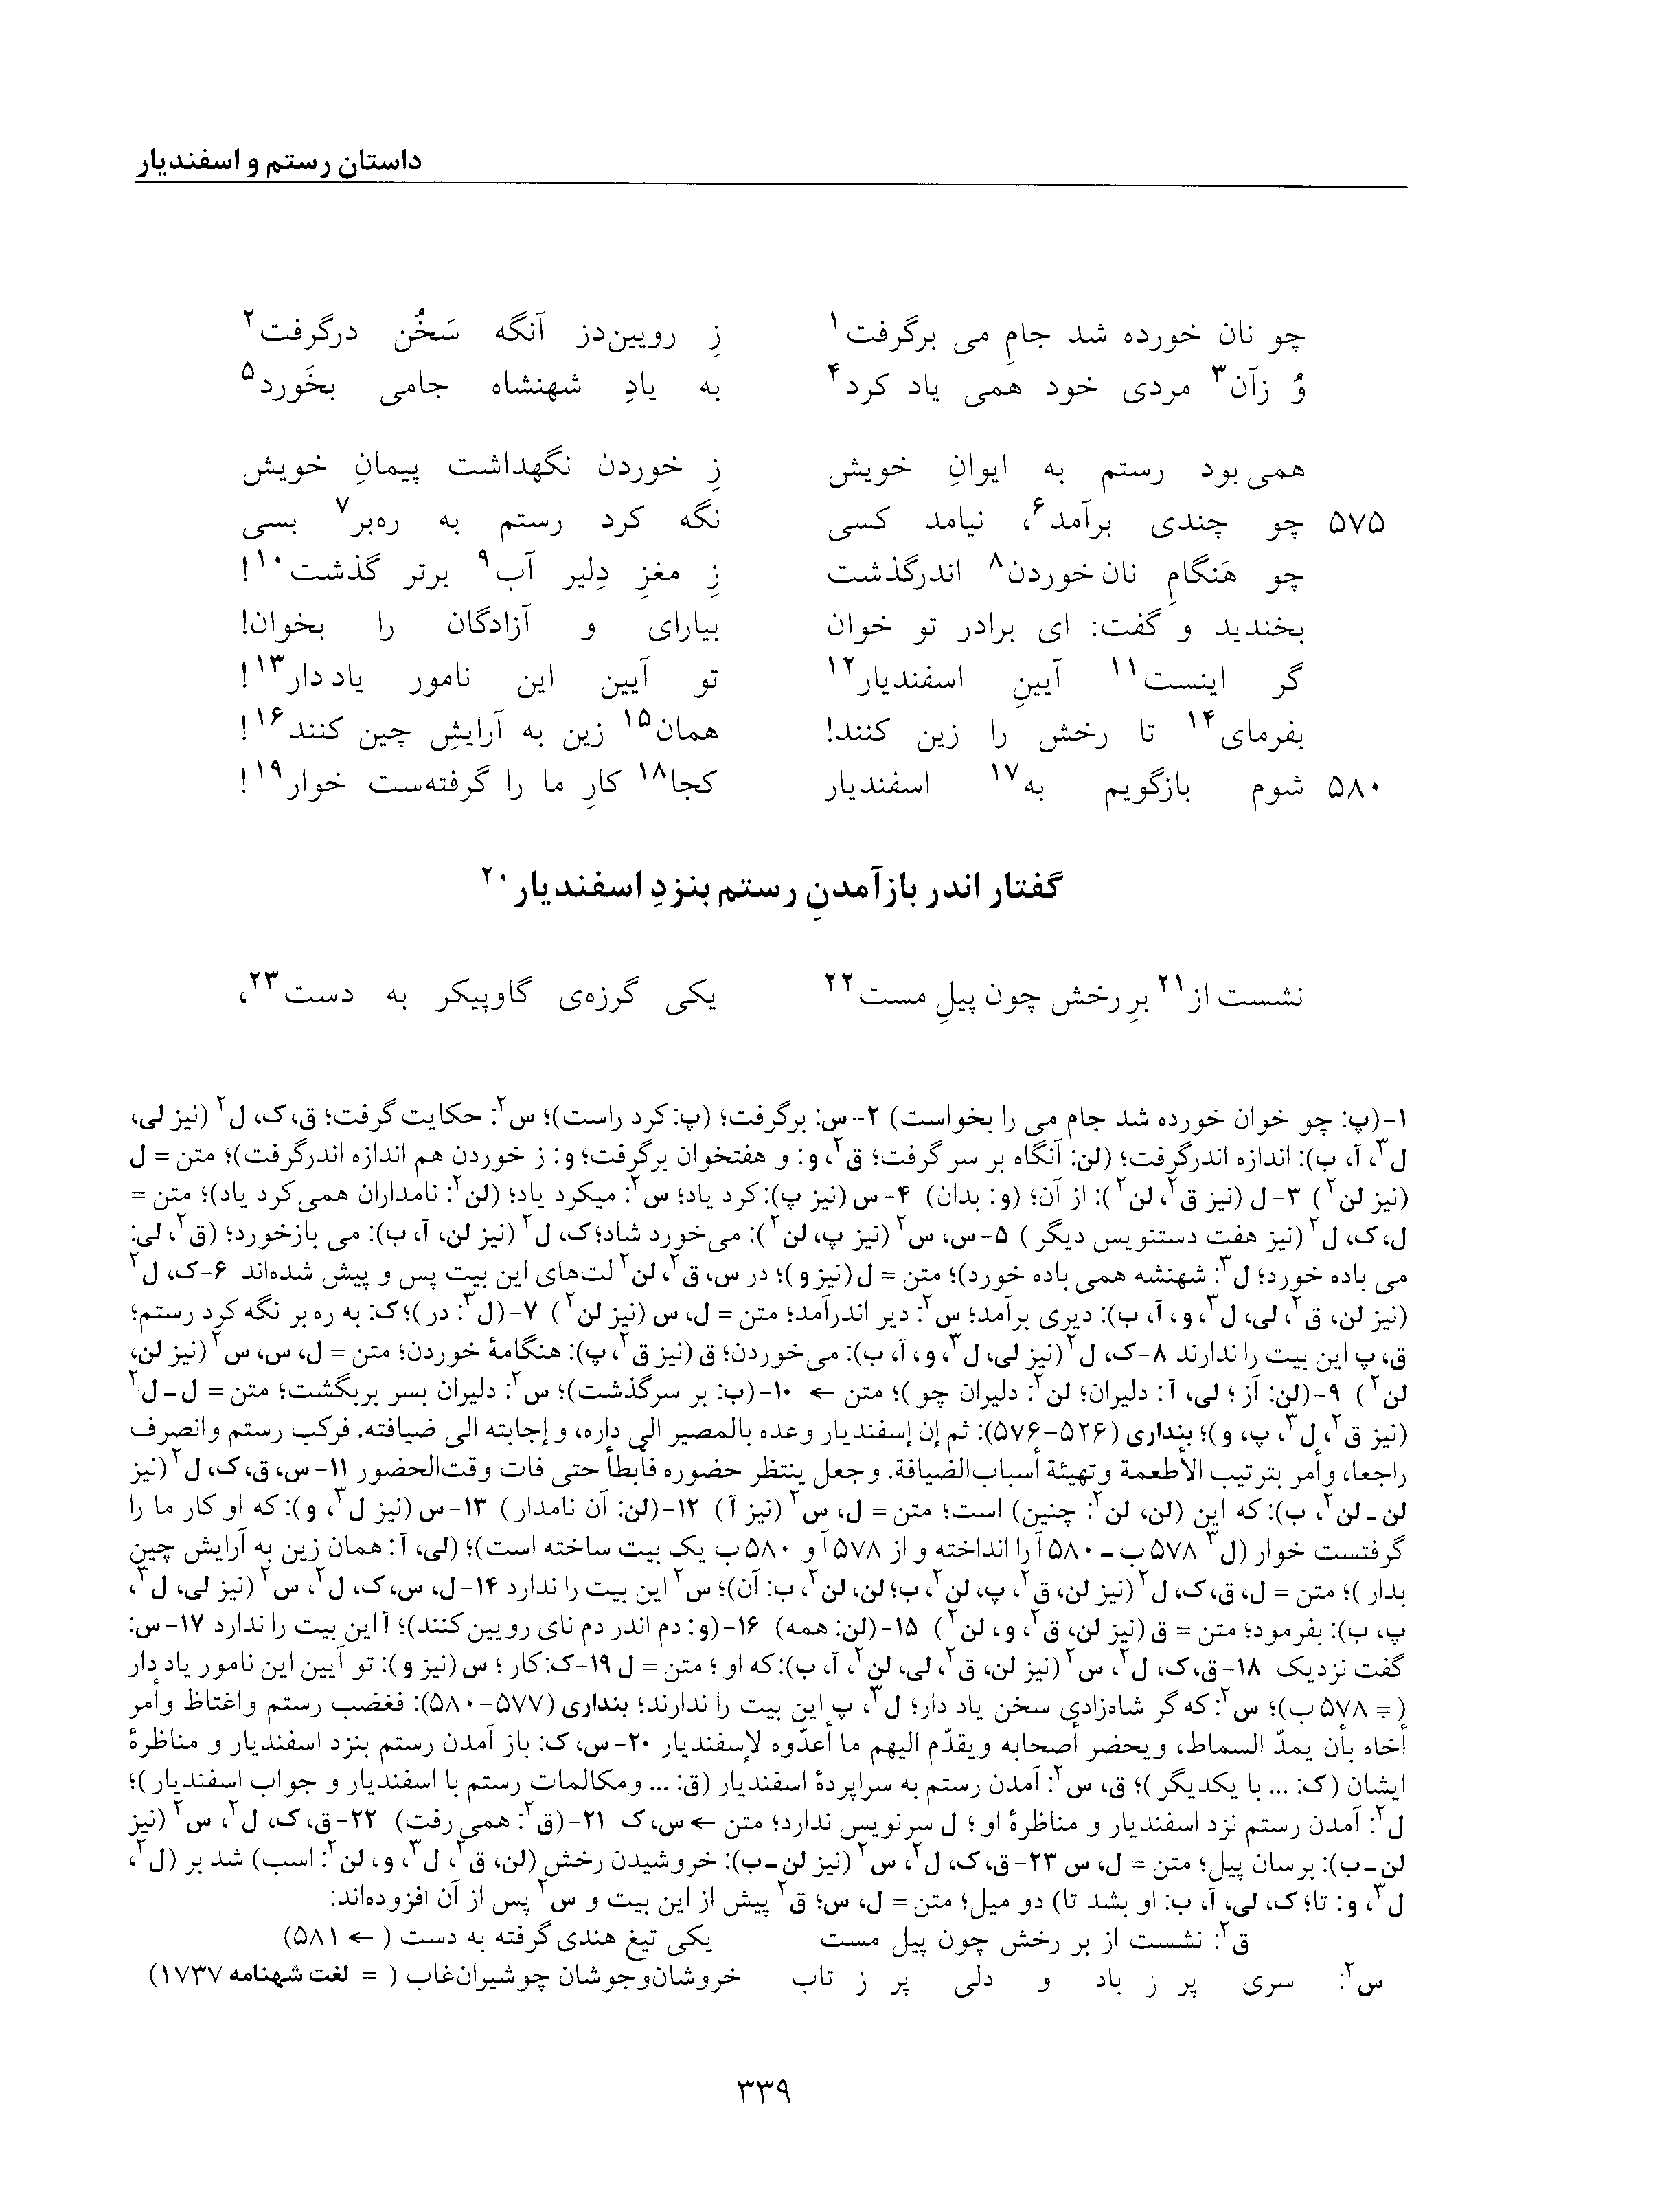 داستان رستم و اسفندیار
چو نان خورده شد جامِ می برگرفت۱ زِ رویین‌دز آنگه سَخُن درگرفت۲
وُ زآن۳ مردی خود همی یاد کرد۴ به یادِ شهنشاه جامی بخَورد۵
همی‌بود رستم به ایوانِ خویش زِ خوردن نگهداشت پیمانِ خویش
۵۷۵ چو چندی برآمد۶، نیامد کسی نگه کرد رستم به ره‌بر۷ بسی
چو هَنگامِ نان‌خوردن۸ اندرگذشت زِ مغزِ دِلیر آب۹ برتر گذشت۱۰!
بخندید و گفت: ای برادر تو خوان بیارای و آزادگان را بخوان!
گر اینست۱۱ آیینِ اسفندیار۱۲ تو آیین این نامور یاددار۱۳!
بفرمای۱۴ تا رخش را زین کنند! همان۱۵ زین به آرایشِ چین کنند۱۶!
۵۸۰ شوم بازگویم به۱۷ اسفندیار کجا۱۸ کارِ ما را گرفته‌ست خوار۱۹!
گفتار اندر بازآمدنِ رستم بنزدِ اسفندیار۲۰
نشست از۲۱ برِ رخش چون پیلِ مست۲۲ یکی گرزه‌ی گاوپیکر به دست۲۳،
۱-(پ: چو خوان خورده شد جام می را بخواست) ۲-س: برگرفت؛ (پ: کرد راست)؛ س۲: حکایت گرفت؛ ق، ک، ل۲ (نیز لی،
ل۳، آ، ب): اندازه اندرگرفت؛ (لن: آنگاه بر سر گرفت؛ ق۲، و: و هفتخوان برگرفت؛ و: ز خوردن هم اندازه اندرگرفت)؛ متن = ل
(نیز لن۲) ۳-ل (نیز ق۲، لن۲): از آن؛ (و: بدان) ۴-س (نیز پ): کرد یاد؛ س۲: میکرد یاد؛ (لن۲: نامداران همی کرد یاد)؛ متن =
ل، ک، ل۲ (نیز هفت دستنویس دیگر) ۵-س، س۲ (نیز پ، لن۲): می‌خورد شاد؛ ک، ل۲ (نیز لن، آ، ب): می بازخورد؛ (ق۲، لی:
می باده خورد؛ ل۳: شهنشه همی باده خورد)؛ متن = ل (نیز و)؛ در س، ق۲، لن۲ لت‌های این بیت پس و پیش شده‌اند ۶-ک، ل۲
(نیز لن، ق۲، لی، ل۳، و، آ، ب): دیری برآمد؛ س۲: دیر اندرآمد؛ متن = ل، س (نیز لن۲) ۷-(ل۳: در)؛ ک: به ره بر نگه کرد رستم؛
ق، پ این بیت را ندارند ۸-ک، ل۲ (نیز لی، ل۳، و، آ، ب): می‌خوردن؛ ق (نیز ق۲، پ): هنگامهٔ خوردن؛ متن = ل، س، س۲ (نیز لن،
لن۲) ۹-(لن: آز؛ لی، آ: دلیران؛ لن۲: دلیران چو)؛ متن ← ۱۰-(ب: بر سرگذشت)؛ س۲: دلیران بسر بربگشت؛ متن = ل-ل۲
(نیز ق۲، ل۳، پ، و)؛ بنداری (۵۲۶-۵۷۶): ثم إن إسفندیار وعده بالمصیر الی داره، و إجابته الی ضیافته. فرکب رستم وانصرف
راجعا، وأمر بترتیب الأطعمة وتهیئة أسباب‌الضیافة. وجعل ینتظر حضوره فأبطأ حتی فات وقت‌الحضور ۱۱-س، ق، ک، ل۲ (نیز
لن-لن۲، ب): که این (لن، لن۲: چنین) است؛ متن = ل، س۲ (نیز آ) ۱۲-(لن: آن نامدار) ۱۳-س (نیز ل۳، و): که او کار ما را
گرفتست خوار (ل۳ ۵۷۸ب-۵۸۰آ را انداخته و از ۵۷۸آ و ۵۸۰ب یک بیت ساخته است)؛ (لی، آ: همان زین به آرایش چین
بدار)؛ متن = ل، ق، ک، ل۲ (نیز لن، ق۲، پ، لن۲، ب؛ لن، لن۲، ب: آن)؛ س۲ این بیت را ندارد ۱۴-ل، س، ک، ل۲، س۲ (نیز لی، ل۳،
پ، ب): بفرمود؛ متن = ق (نیز لن، ق۲، و، لن۲) ۱۵-(لن: همه) ۱۶-(و: دم اندر دم نای رویین کنند)؛ آ این بیت را ندارد ۱۷-س:
گفت نزدیک ۱۸-ق، ک، ل۲، س۲ (نیز لن، ق۲، لی، لن۲، آ، ب): که او؛ متن = ل ۱۹-ک: کار؛ س (نیز و): تو آیین این نامور یاد دار
(= ۵۷۸ب)؛ س۲: که گر شاه‌زادی سخن یاد دار؛ ل۳، پ این بیت را ندارند؛ بنداری (۵۷۷-۵۸۰): فغضب رستم واغتاظ وأمر
أخاه بأن یمدّ السماط، ویحضر أصحابه ویقدّم الیهم ما أعدّوه لإسفندیار ۲۰-س، ک: باز آمدن رستم بنزد اسفندیار و مناظرهٔ
ایشان (ک: ... با یکدیگر)؛ ق، س۲: آمدن رستم به سراپردهٔ اسفندیار (ق: ... ومکالمات رستم با اسفندیار و جواب اسفندیار)؛
ل۲: آمدن رستم نزد اسفندیار و مناظرهٔ او؛ ل سرنویس ندارد؛ متن ← س، ک ۲۱-(ق۲: همی رفت) ۲۲-ق، ک، ل۲، س۲ (نیز
لن-ب): برسان پیل؛ متن = ل، س ۲۳-ق، ک، ل۲، س۲ (نیز لن-ب): خروشیدن رخش (لن، ق۲، ل۳، و، لن۲: اسب) شد بر (ل۲،
ل۳، و: تا؛ ک، لی، آ، ب: او بشد تا) دو میل؛ متن = ل، س؛ ق۲ پیش از این بیت و س۲ پس از آن افزوده‌اند:
ق۲: نشست از بر رخش چون پیل مست یکی تیغ هندی گرفته به دست (← ۵۸۱)
س۲: سری پر ز باد و دلی پر ز تاب خروشان‌و‌جوشان چو شیران‌غاب (= لغت شهنامه ۱۷۳۷)
۳۳۹